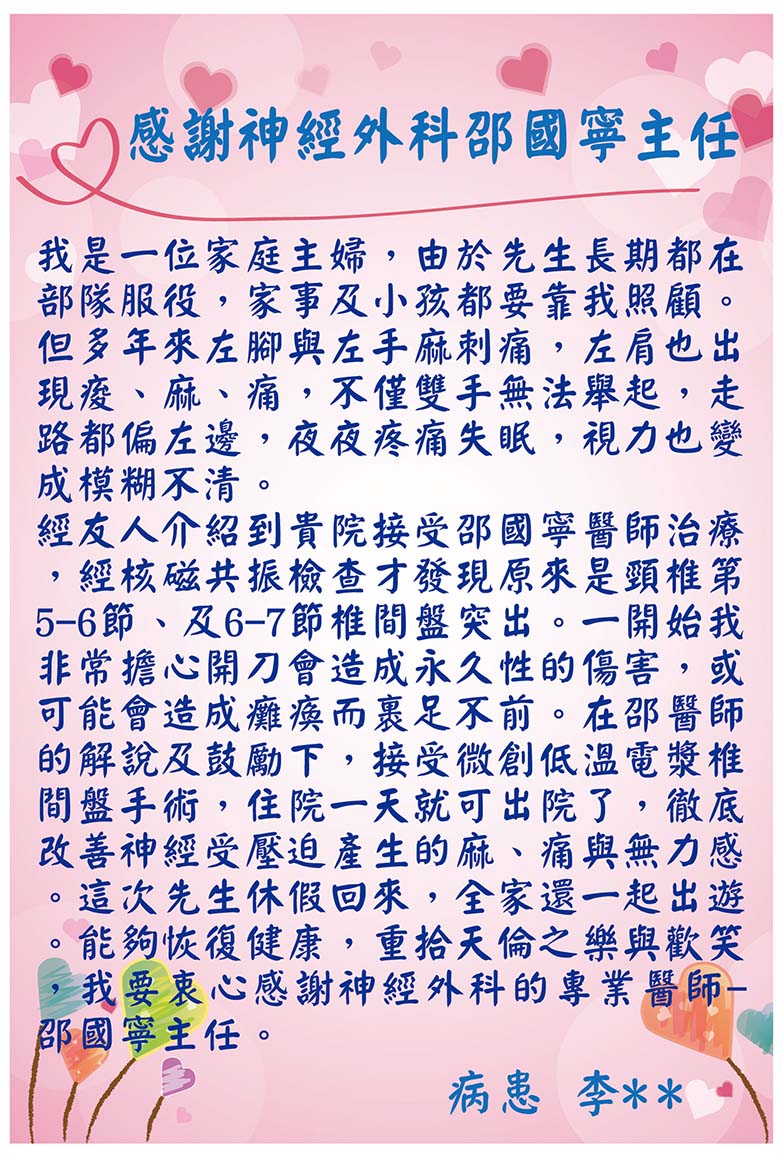 感謝神經外科邵國寧主任
我是一位家庭主婦，由於先生長期都在
部隊服役，家事及小孩都要靠我照顧。
但多年來左腳與左手麻刺痛，左肩也出
現痠、麻、痛，不僅雙手無法舉起，走
路都偏左邊，夜夜疼痛失眠，視力也變
成模糊不清。
經友人介紹到貴院接受邵國寧醫師治療
，經核磁共振檢查才發現原來是頸椎第
5-6節、及6-7節椎間盤突出。一開始我
非常擔心開刀會造成永久性的傷害，或
可能會造成癱瘓而裹足不前。在邵醫師
的解說及鼓勵下，接受微創低溫電漿椎
間盤手術，住院一天就可出院了，徹底
改善神經受壓迫產生的麻、痛與無力感
。這次先生休假回來，全家還一起出遊
。能夠恢復健康，重拾天倫之樂與歡笑
，我要衷心感謝神經外科的專業醫師-
邵國寧主任。
病患 李**